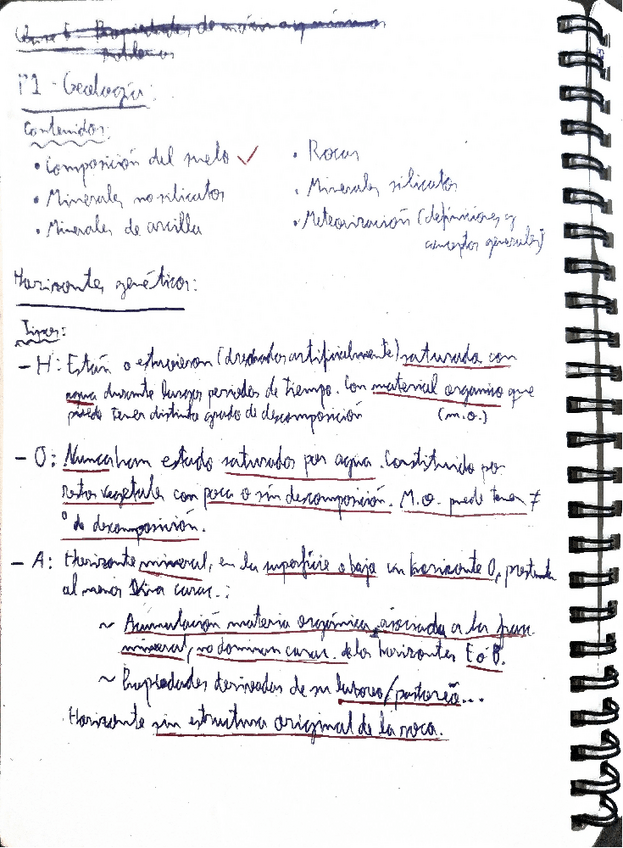 Clase 5 - Propiedades de
P1 - Geología:
Contenidos:
• Composición del suelo ✓
• Minerales no silicatos
• Minerales de arcilla
• Rocas
• Minerales silicatos
• Meteorización (definiciones y
conceptos generales)
Horizontes genéticos:
Tipos:
- H: Están o estuvieron (drenados artificialmente) saturada con
agua durante largos periodos de tiempo. Con material orgánico que
puede tener distinto grado de descomposición (m.o.)
- O: Nunca han estado saturados por agua. Constituido por
restos vegetales con poca o sin descomposición. M.O. puede tener ≠
° de descomposición.
- A: Horizonte mineral, en la superficie o bajo un horizonte O, presenta
al menos una carac.:
~ Acumulación materia orgánica asociada a la frac.
mineral, no dominan carac. de los horizontes E o B.
~ Propiedades derivadas de su laboreo/pastoreo...
Horizonte sin estructura original de la roca.